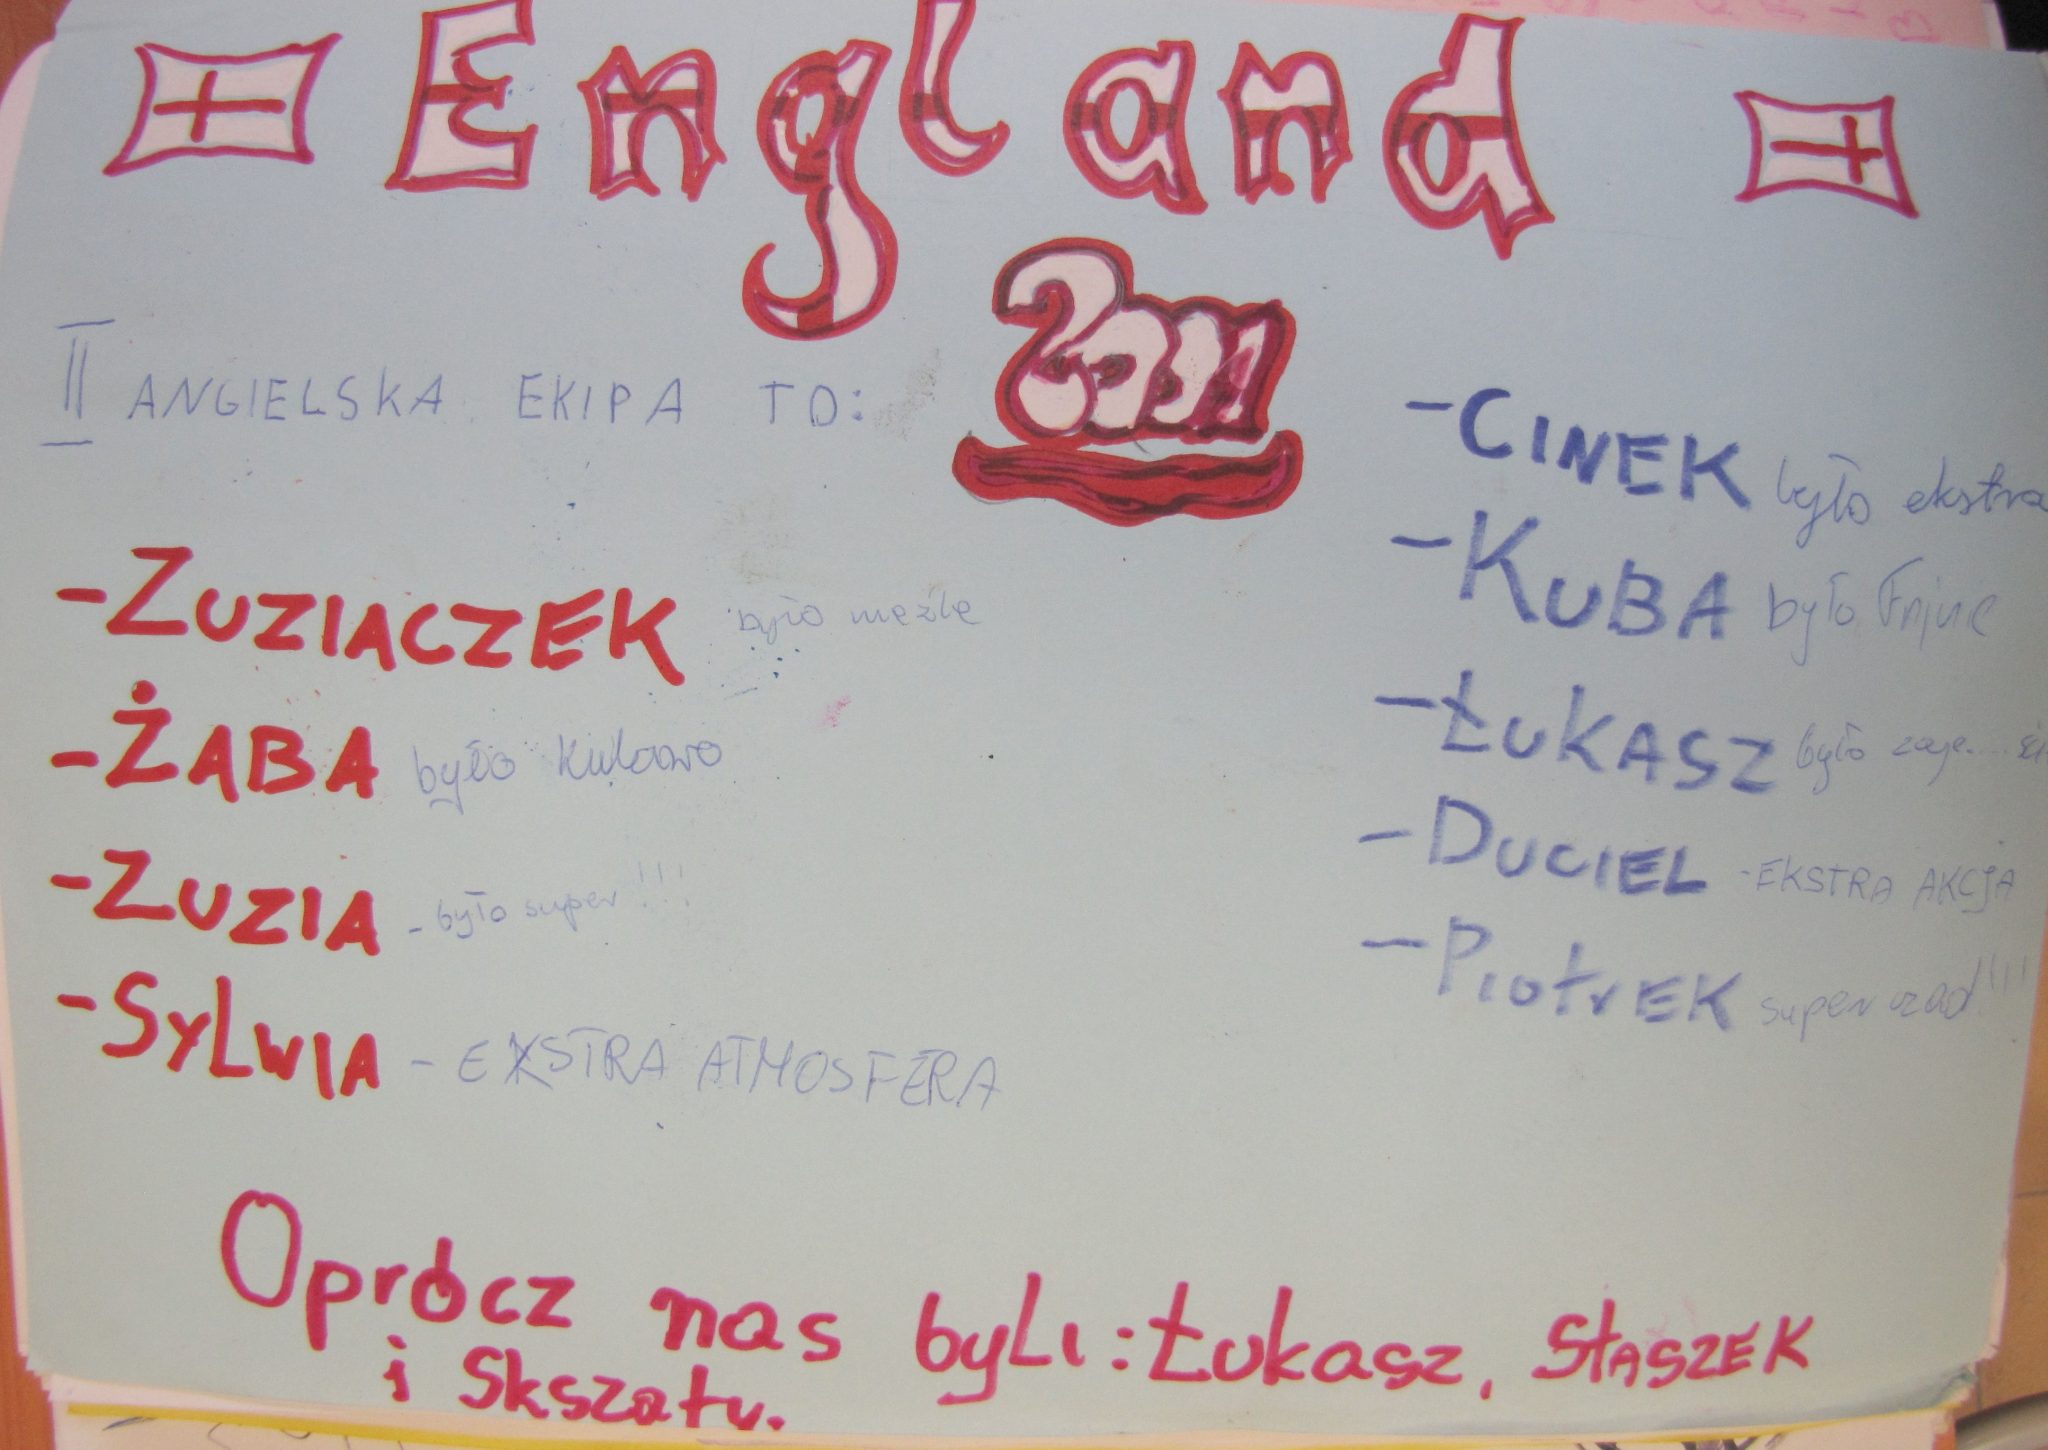 England
2011
II ANGIELSKA EKIPA TO:
- ZUZIACZEK było nieźle
- ŻABA było
- ZUZIA - było super!!!
- SYLWIA - EKSTRA ATMOSFERA
- CINEK było ekstra
- KUBA było Fajnie
- ŁUKASZ było zaje....
- DUCIEL - EKSTRA AKCJA
- PIOTREK super czad!!!
Oprócz nas byli: Łukasz, StaSZEK
i Skszatu.